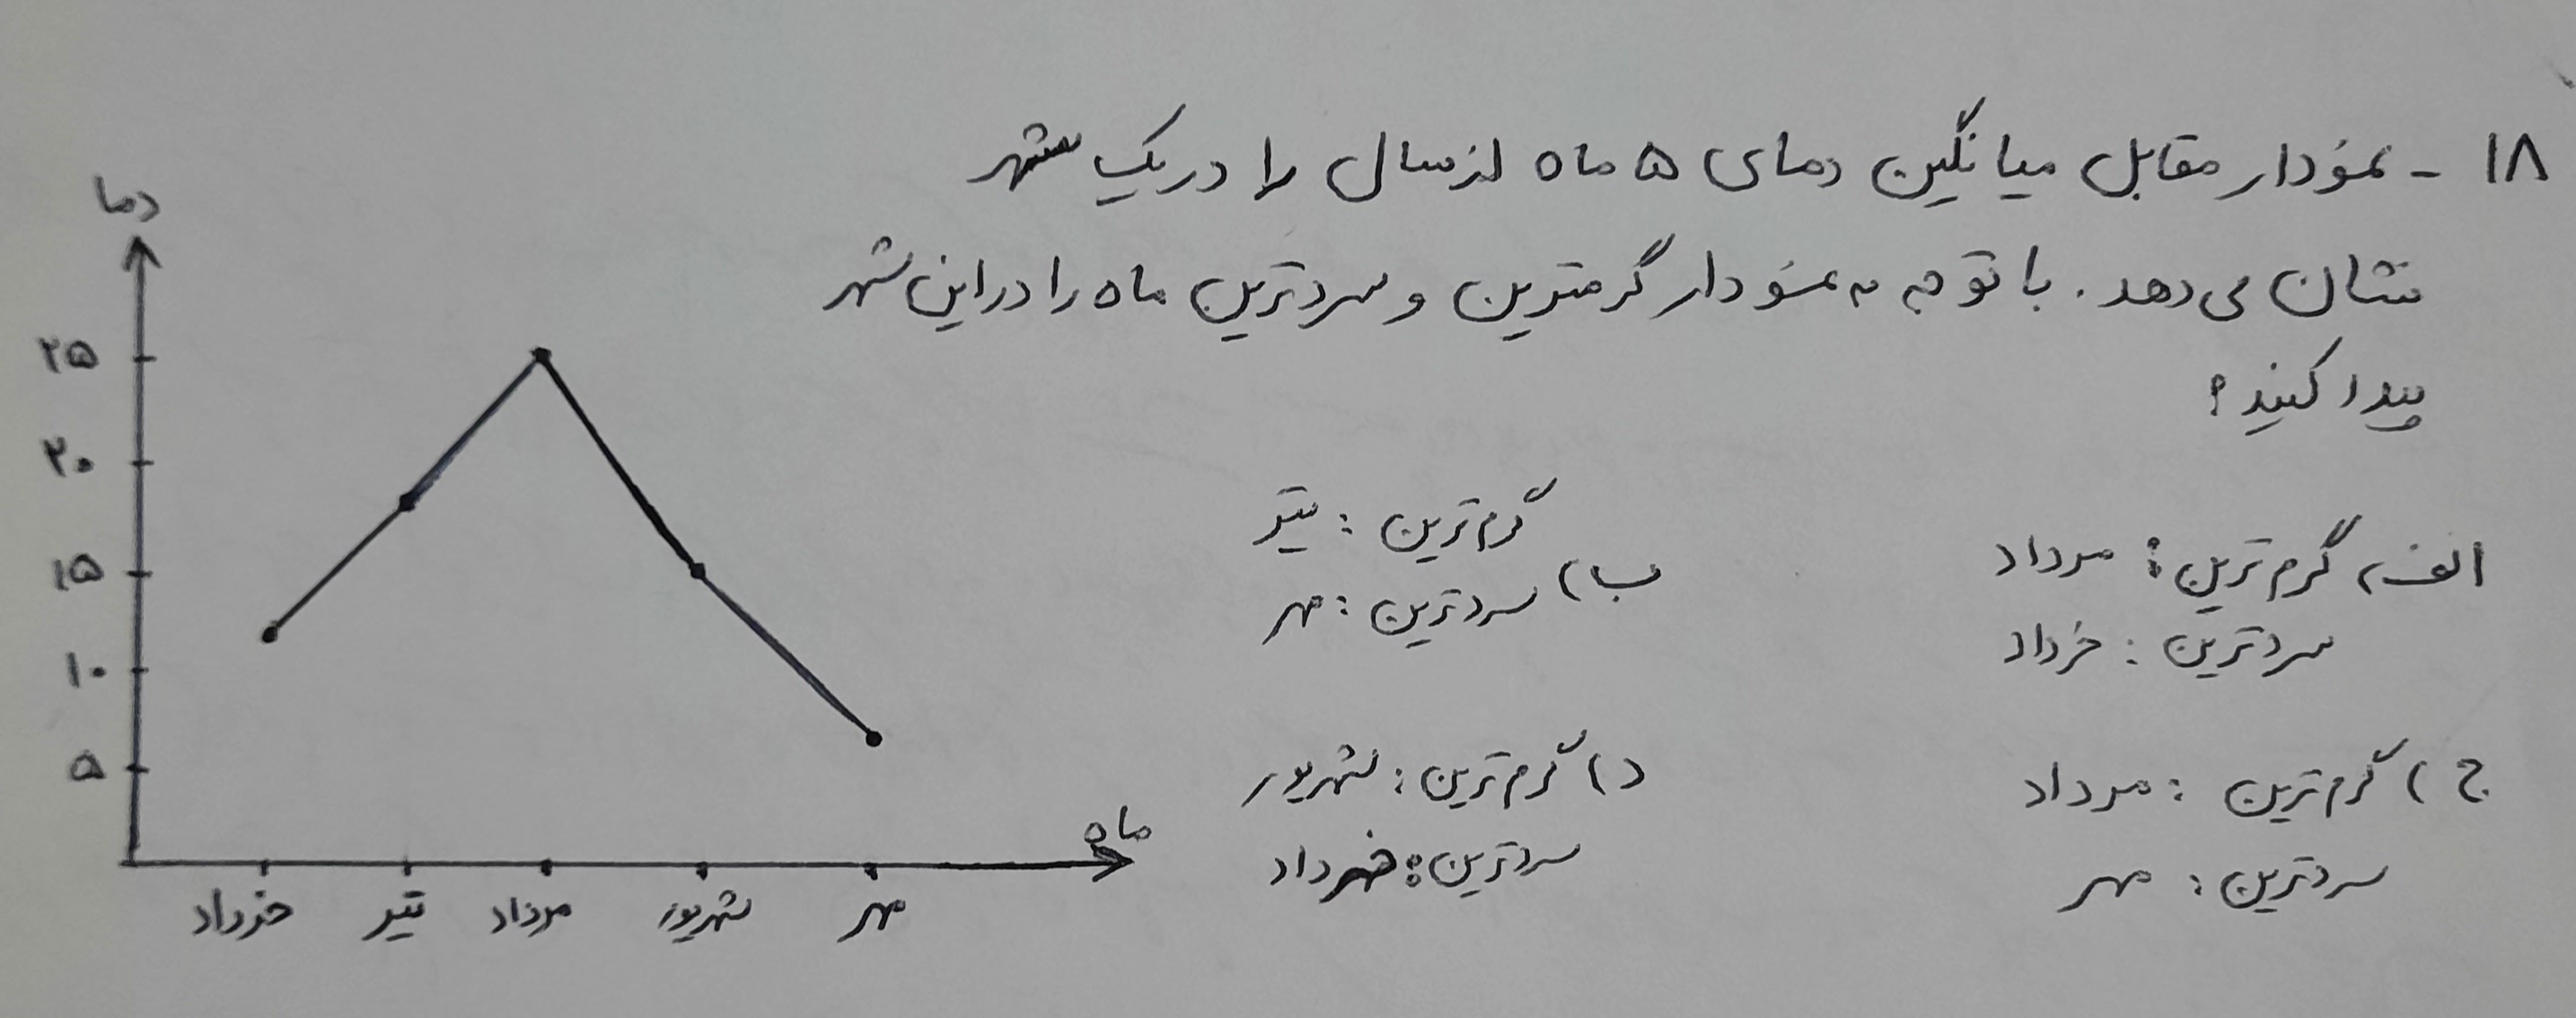 ۱۸ - نمودار مقابل میانگین دمای ۵ ماه از سال را در یک شهر
نشان می‌دهد. با توجه به نمودار گرمترین و سردترین ماه را در این شهر
پیدا کنید؟
الف) گرم‌ترین: مرداد
سردترین: خرداد
ب) گرم‌ترین: تیر
سردترین: مهر
ج) گرم‌ترین: مرداد
سردترین: مهر
د) گرم‌ترین: شهریور
سردترین: خرداد
دما
۲۵
۲۰
۱۵
۱۰
۵
ماه
خرداد تیر مرداد شهریور مهر